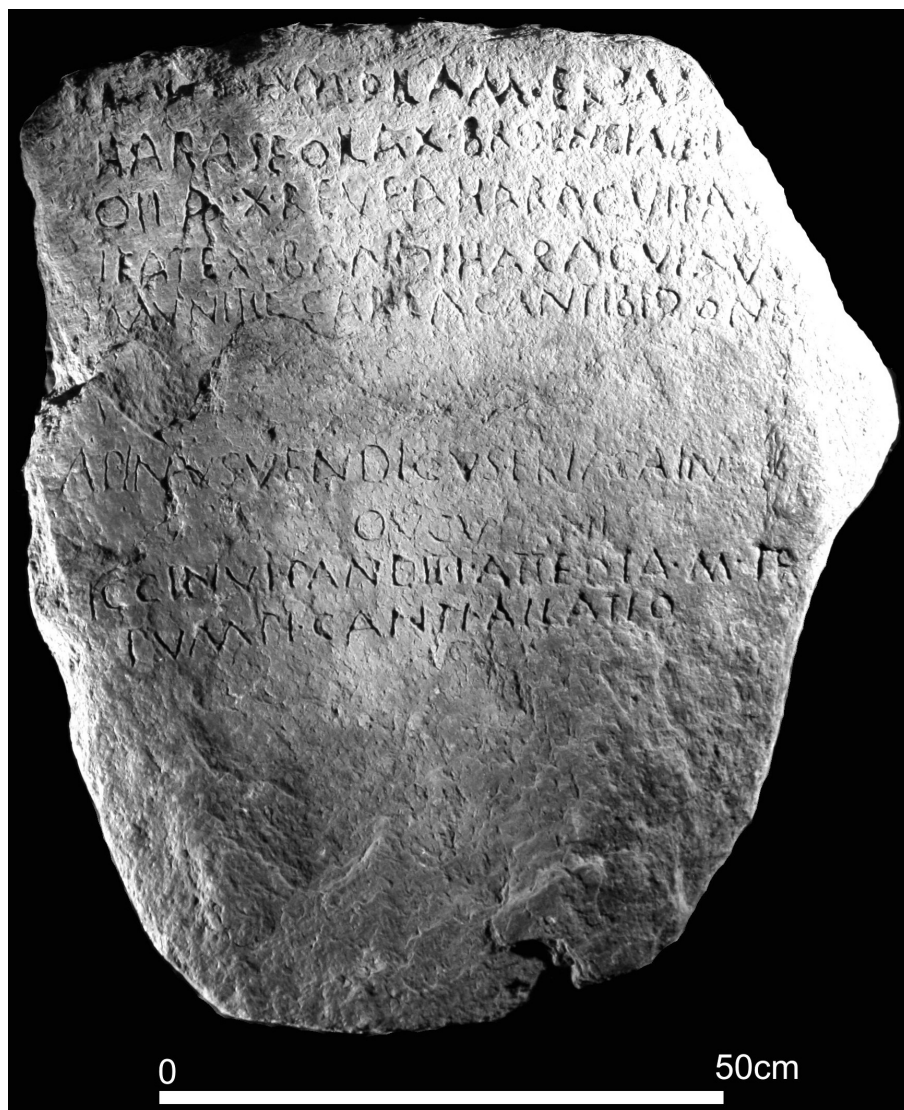 OILAM·ERBAM
HARASE OILA X·BROENEIAE H
OILA·X·REVE AHARACVI TAV
IEATE X·BANDI HARAGVI AV
MVNITIE CARIA CANTIBIDONE
APINVS VENDICVS ERIACAINV
ICCINVI PANDITI·ATTEDIA·M·TR
PVMPI·CANTI·AILATIO
0 50cm